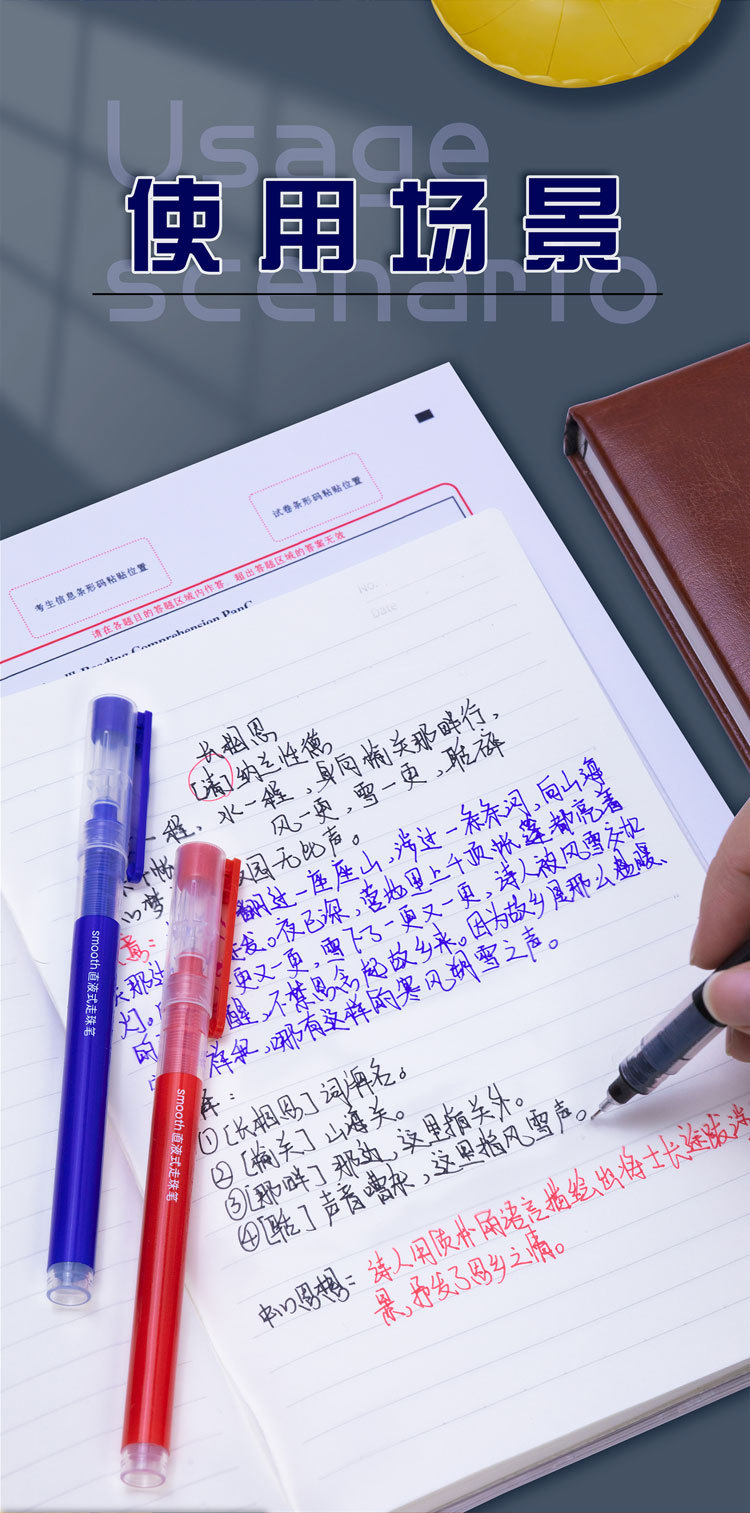 Usage
使用场景
scenario
试卷条形码粘贴位置
考生信息条形码粘贴位置
请在各题目的答题区域内作答，超出答题区域的答案无效
Reading Comprehension
No.
Date
长相思
[清]纳兰性德
一程，水一程，身向榆关那畔行，
风一更，雪一更，聒碎
园无此声。
翻过一座座山，涉过一条条河，向山海
发。夜已深，营地里上千顶帐篷都亮着
灯。
更又一更，雪下了一更又一更，诗人被风雪交加
醒，不禁思念起故乡来。因为故乡是那么温暖、
祥和，哪有这样的寒风朔雪之声。
①[长相思]词牌名。
②[榆关]山海关。
③[那畔]那边，这里指关外。
④[聒]声音嘈杂，这里指风雪声。
中心思想：诗人用质朴的语言描绘出将士长途跋涉
景，抒发了思乡之情。
smooth 直液式走珠笔
smooth 直液式走珠笔